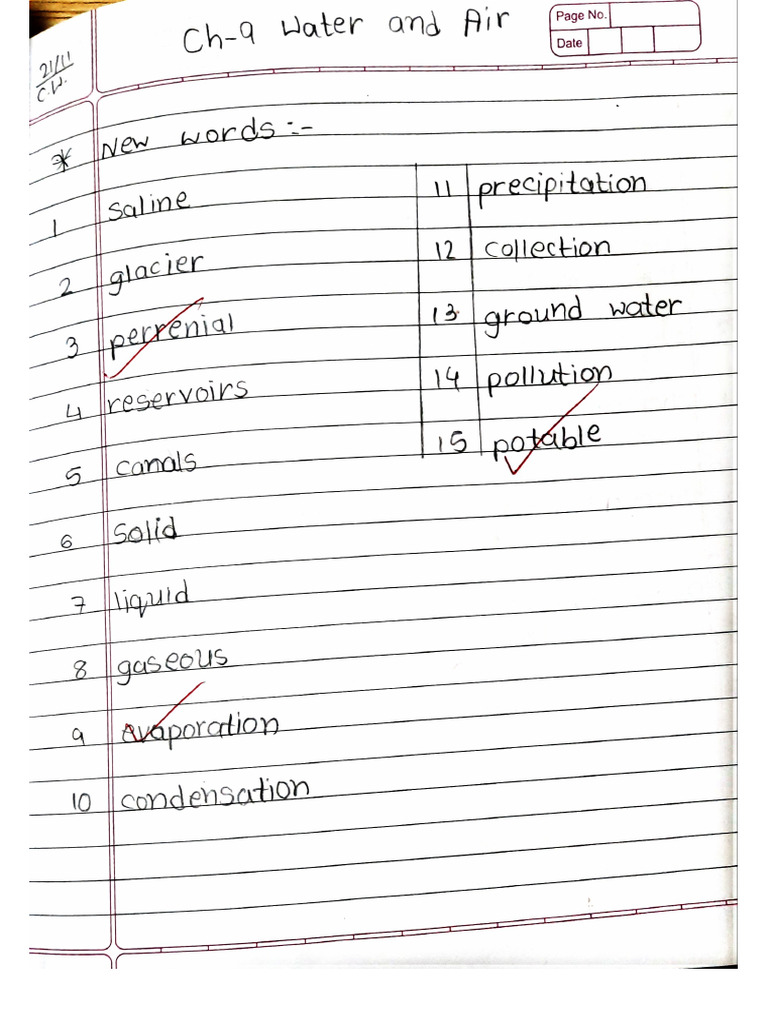 Ch-9 Water and Air
Page No.
Date
21/11
C.W.
* New words:-
1 saline
2 glacier
3 perrenial
4 reservoirs
5 canals
6 solid
7 liquid
8 gaseous
9 evaporation
10 condensation
11 precipitation
12 collection
13 ground water
14 pollution
15 potable